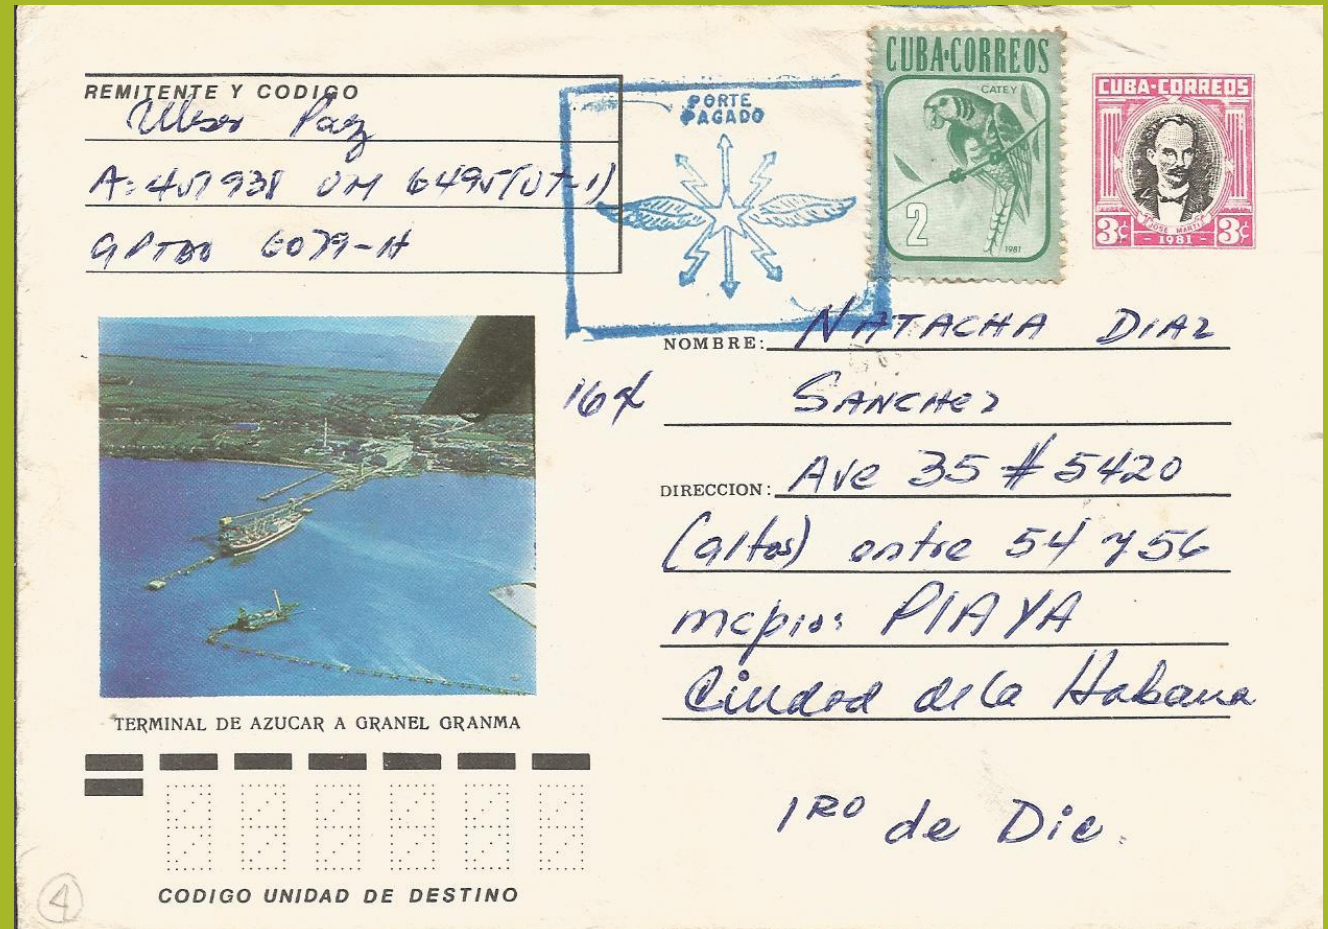 REMITENTE Y CODIGO
Paz
A: 451938 UM 6495 (UT-1)
APTDO 6079-H
PORTE
PAGADO
CUBA·CORREOS
CATEY
2
1981
CUBA-CORREOS
JOSE MARTI
3¢ - 1981 - 3¢
NOMBRE: NATACHA DIAZ
SANCHEZ
DIRECCION: Ave 35 # 5420
(altos) entre 54 y 56
mcpio: PLAYA
Ciudad de la Habana
1RO de Dic.
TERMINAL DE AZUCAR A GRANEL GRANMA
CODIGO UNIDAD DE DESTINO
4